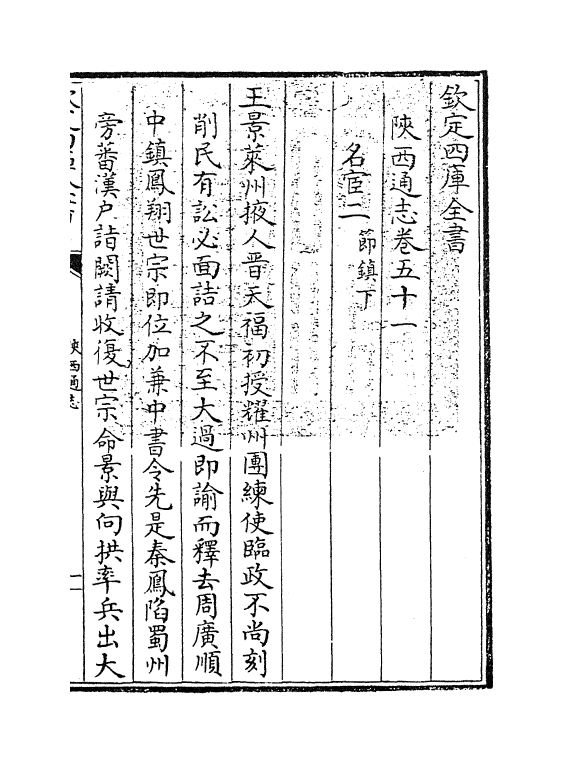 欽定四庫全書
陝西通志卷五十一
名宦二 節鎮下
王景萊州掖人晋天福初授耀州團練使臨政不尚刻
削民有訟必面詰之不至大過即諭而釋去周廣順
中鎮鳳翔世宗即位加兼中書令先是秦鳳陷蜀州
旁蕃漢户詣闕請收復世宗命景與向拱率兵出大
陝西通志
一